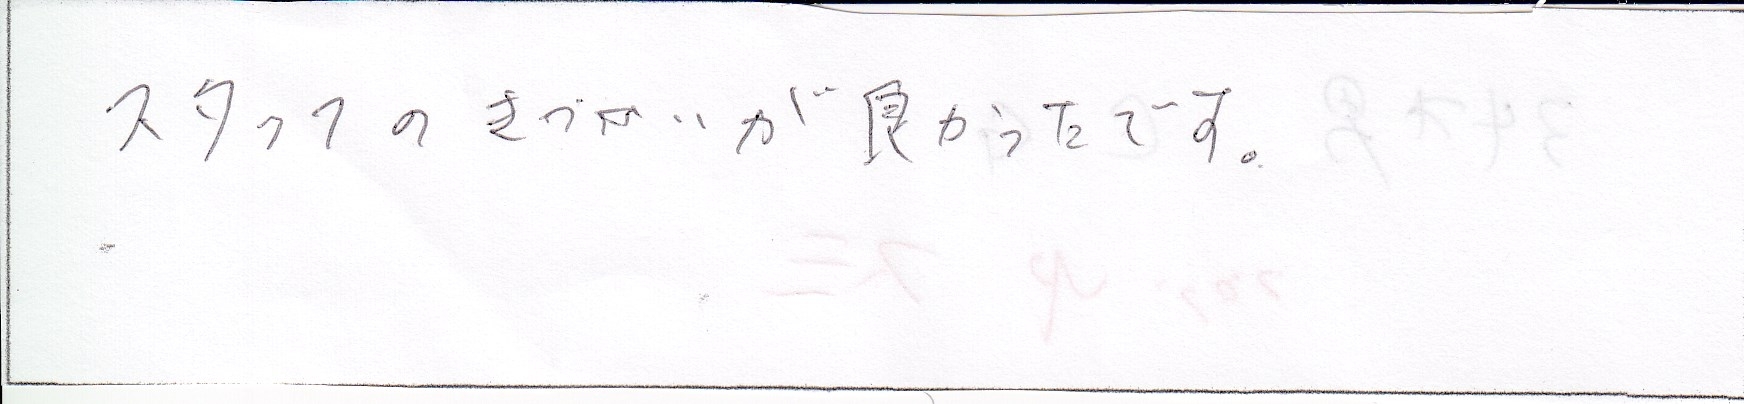 スタッフのきづかいが良かったです。